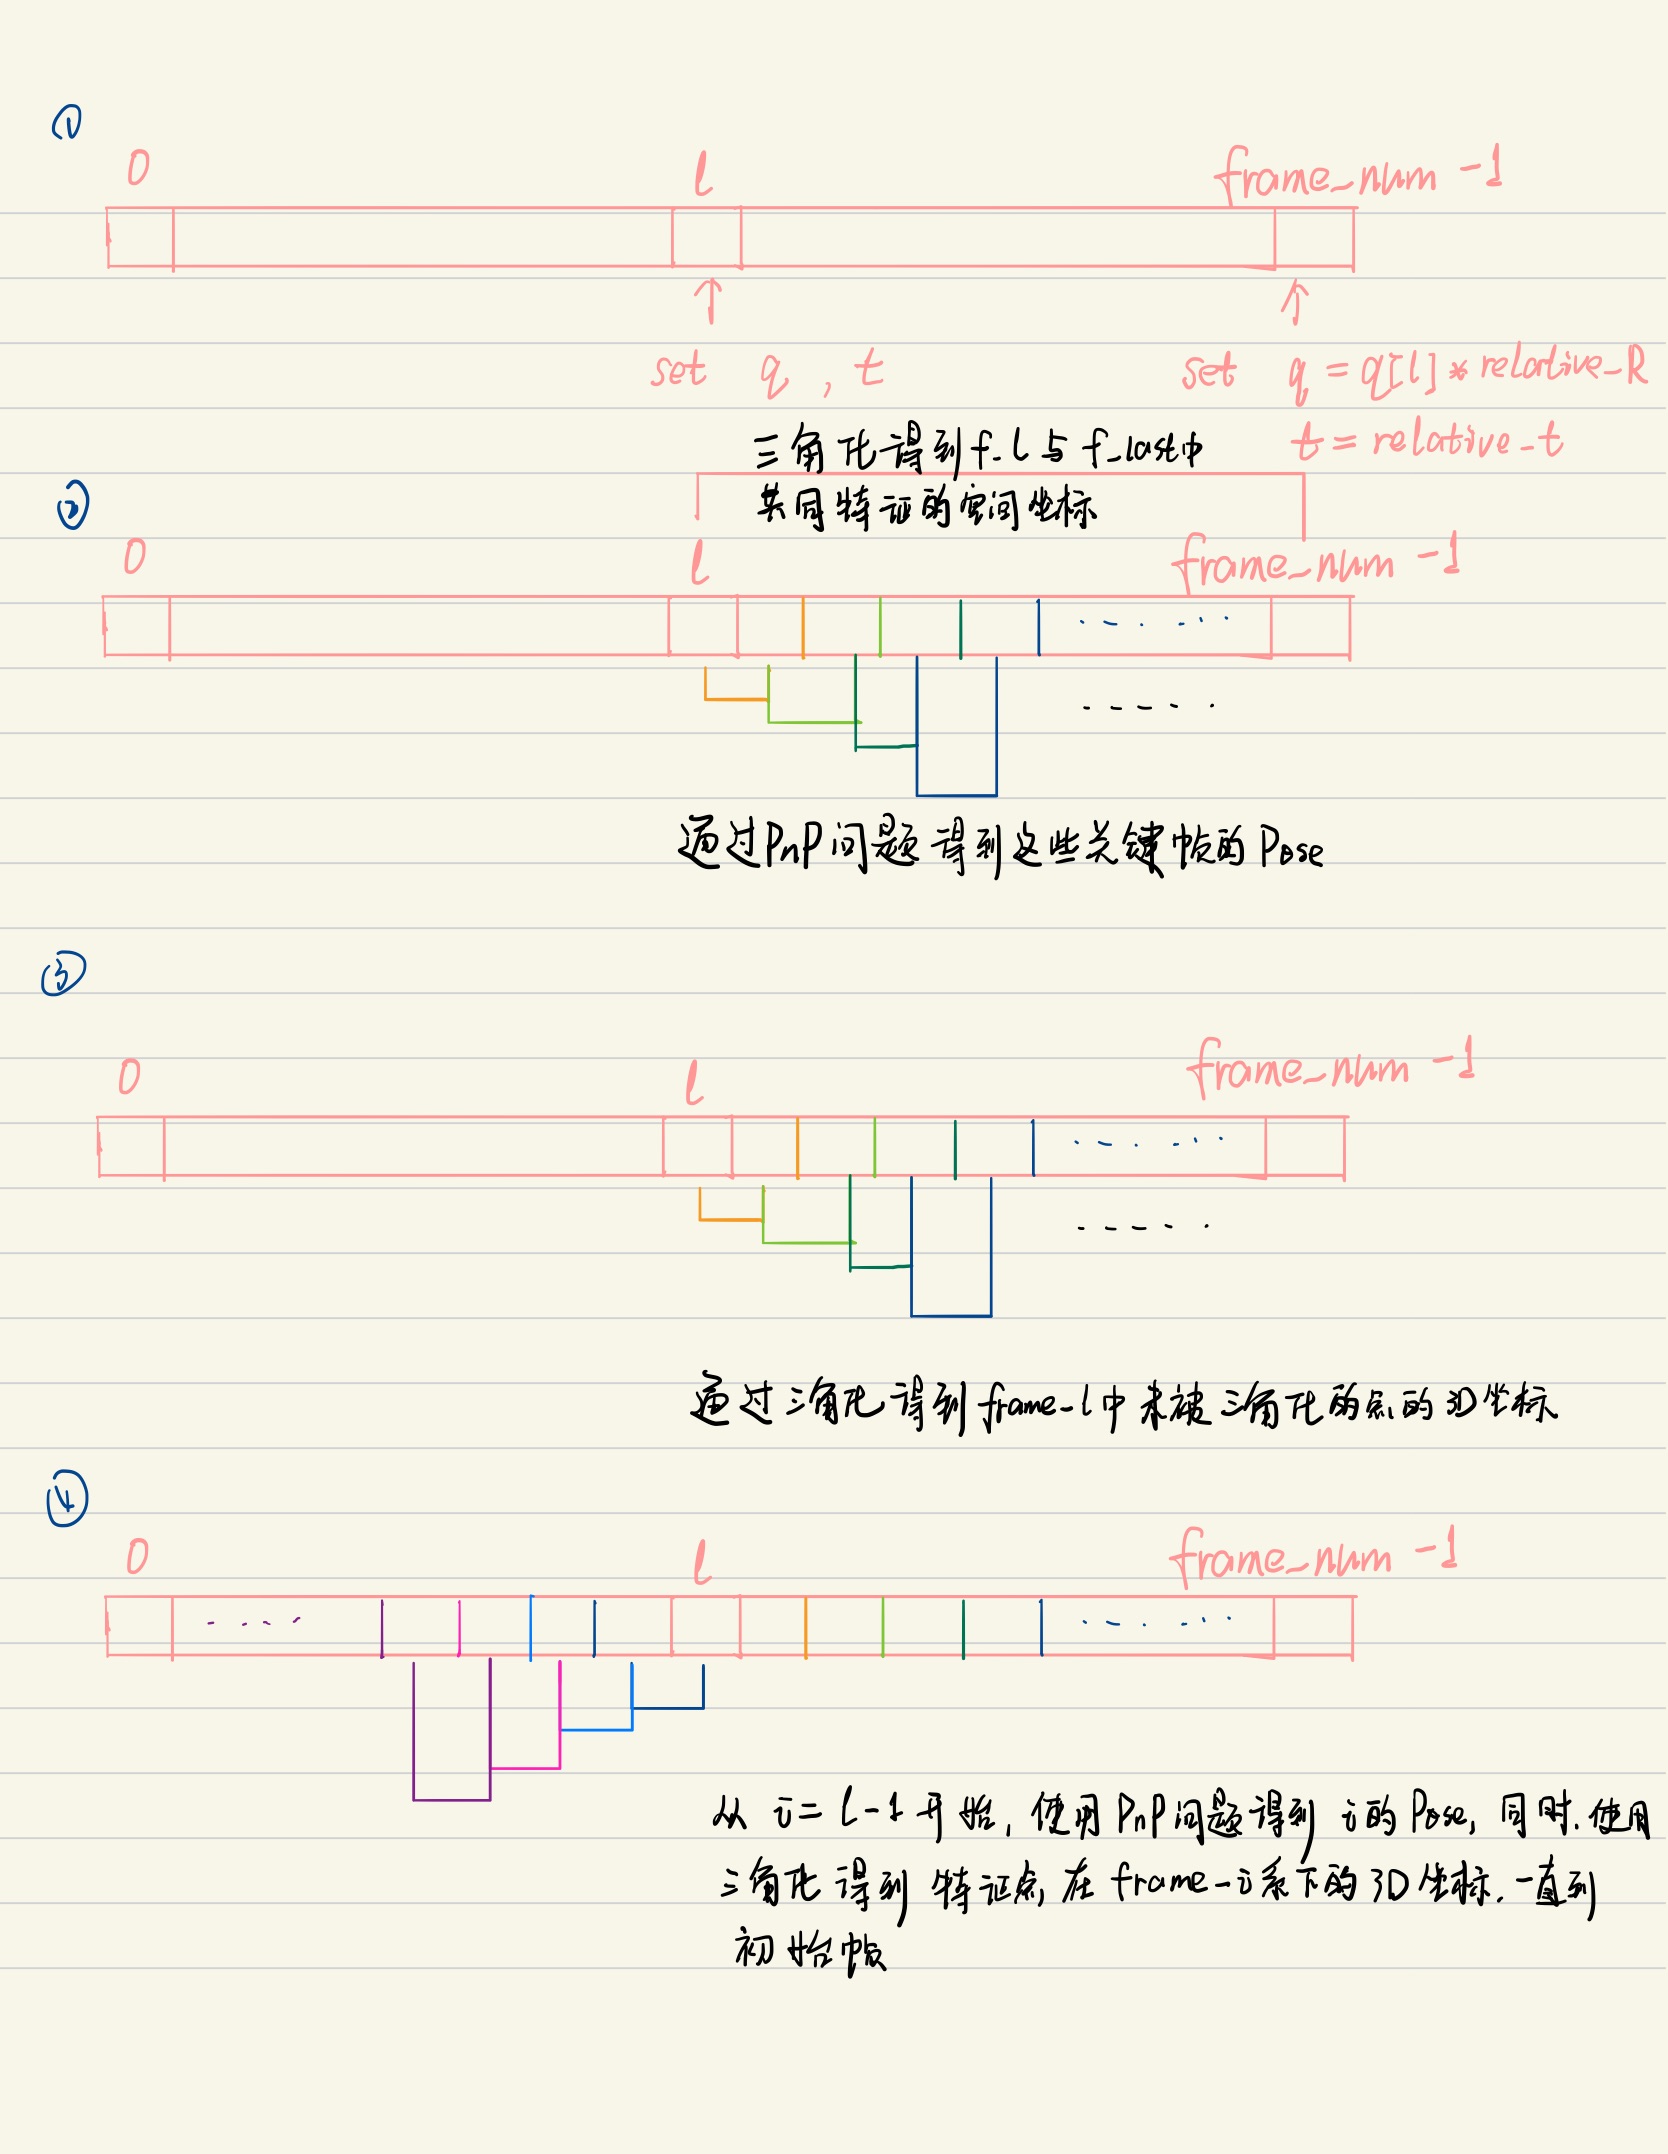 ①
0 l frame_num -1
set q , t set q = q[l] * relative_R
t = relative_t
三角化得到f_l与f_last中
共同特征的空间坐标
②
0 l frame_num -1
通过PnP问题得到这些关键帧的Pose
③
0 l frame_num -1
通过三角化得到frame_l中未被三角化的点的3D坐标
④
0 l frame_num -1
从 i = l-1 开始, 使用PnP问题得到 i的Pose, 同时, 使用
三角化得到 特征点, 在 frame_i系下的3D坐标. 一直到
初始帧